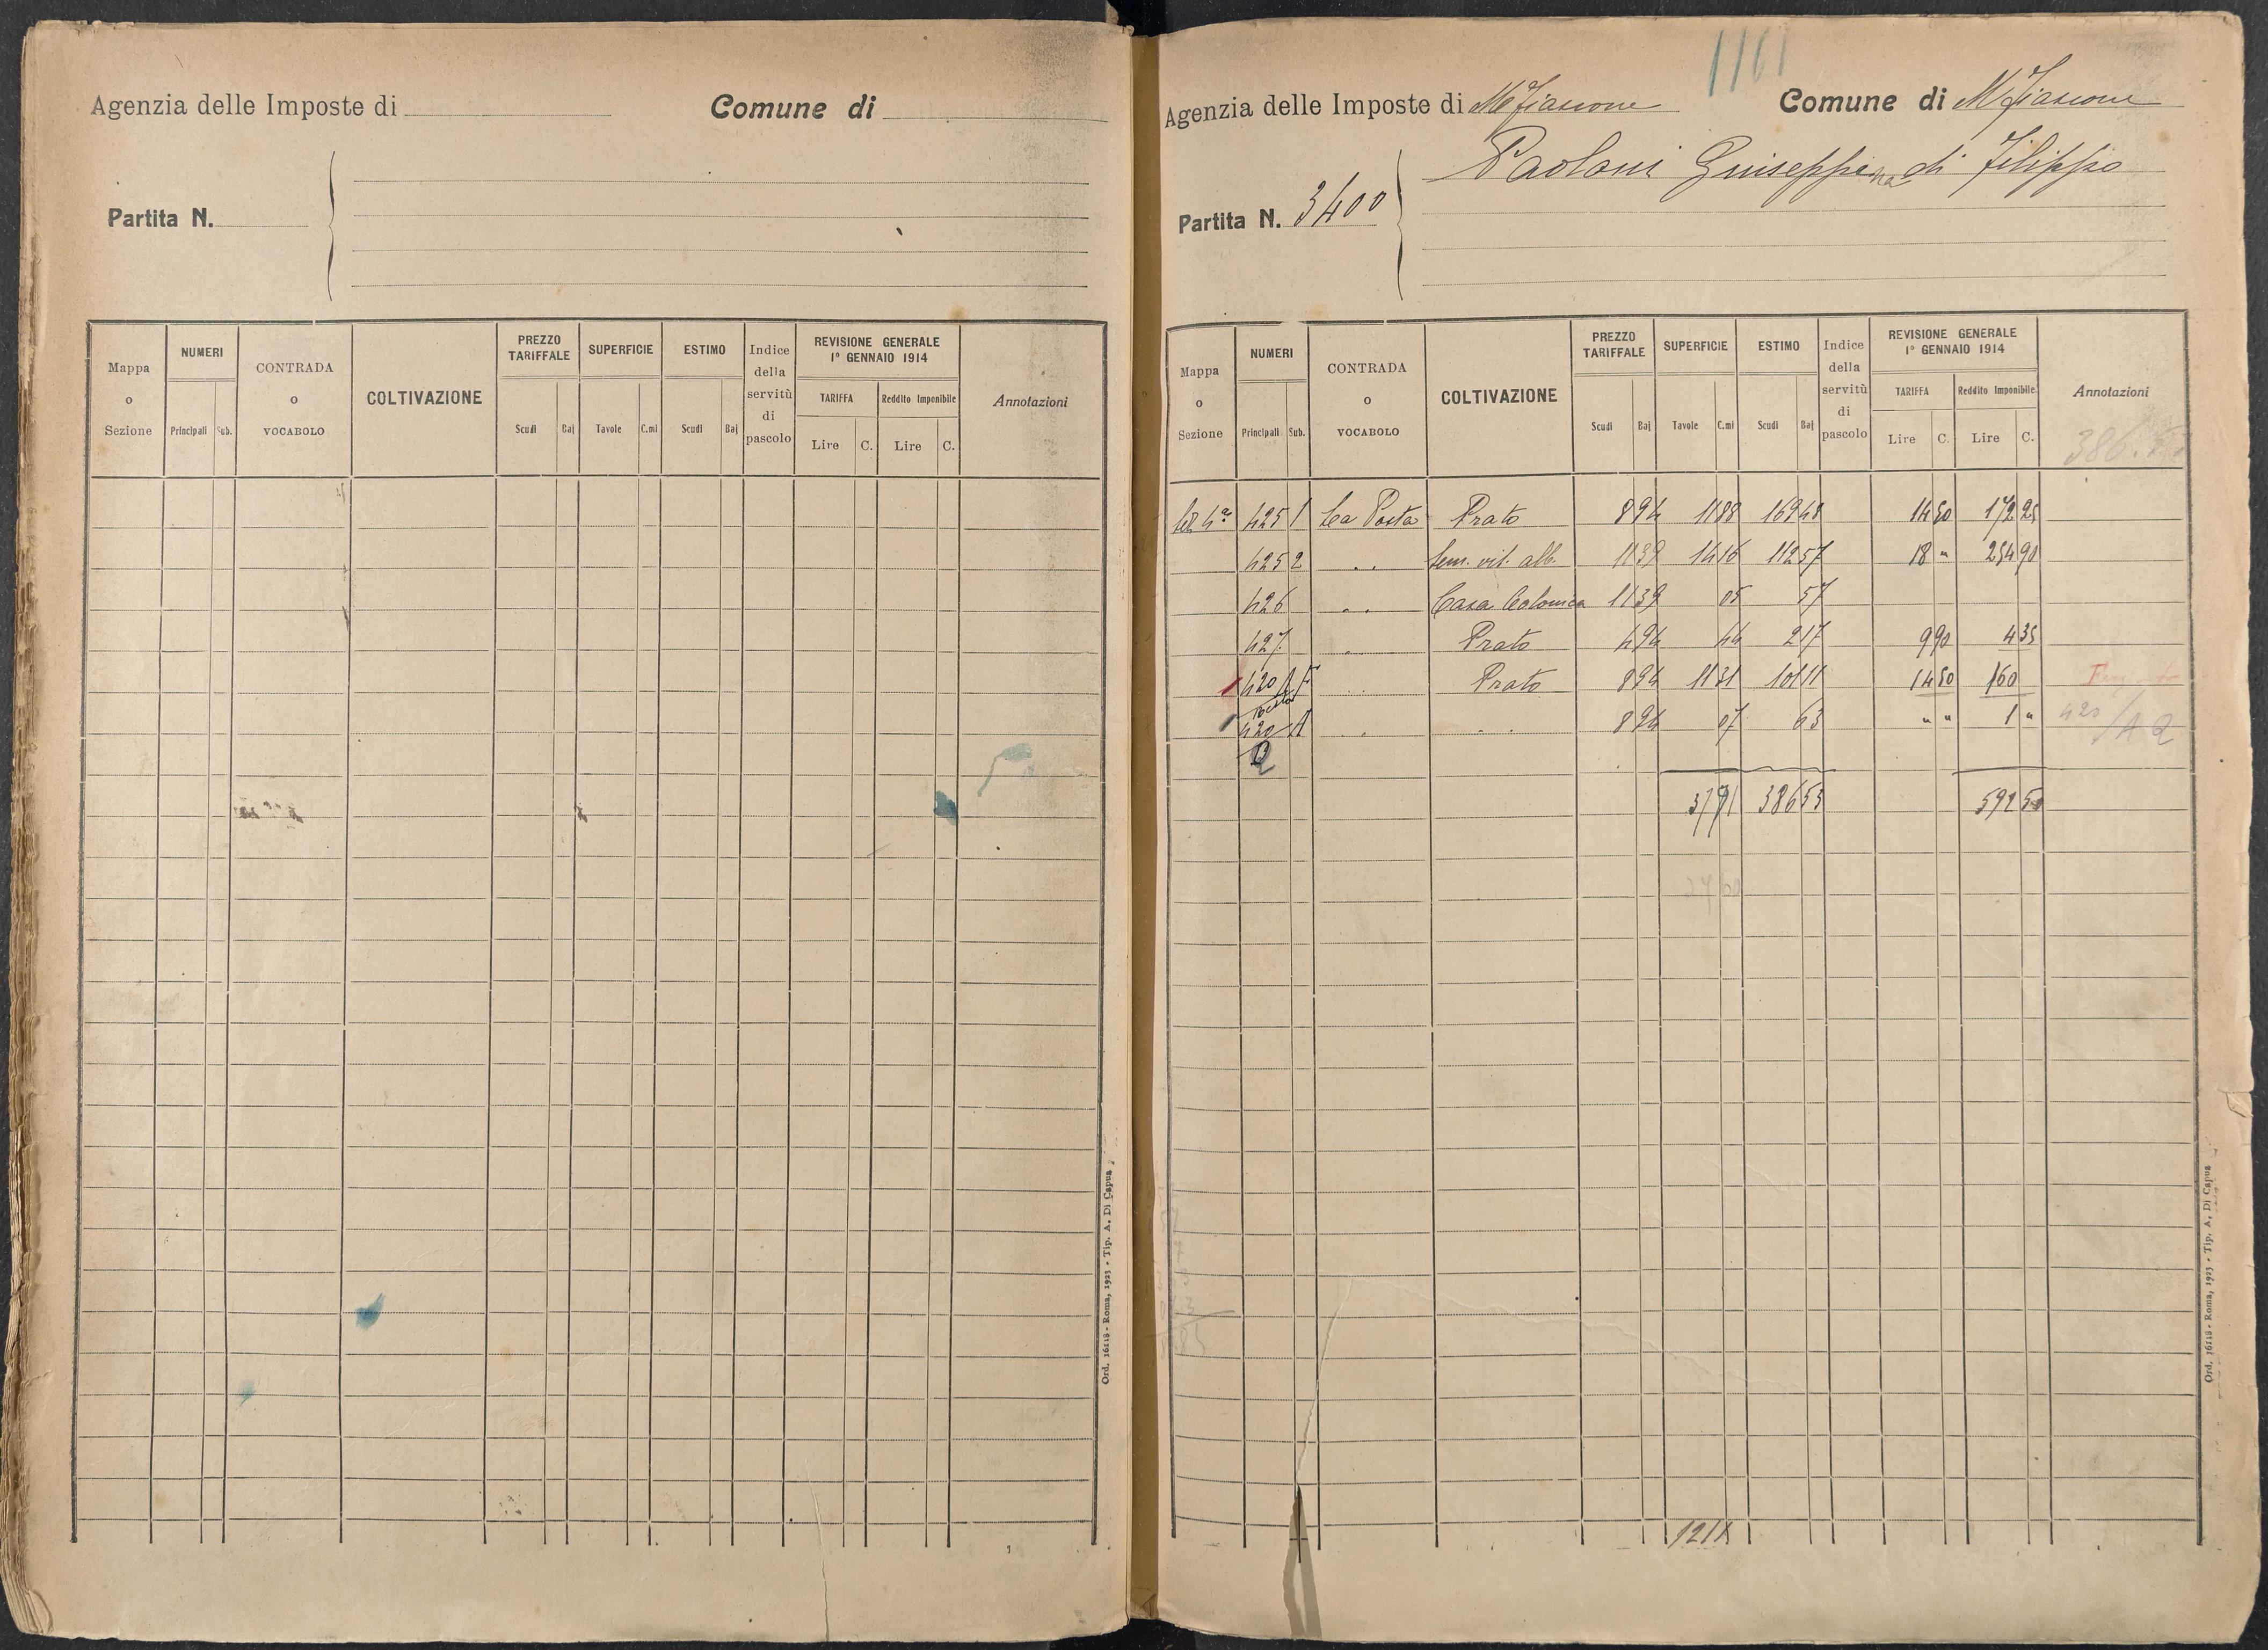 Agenzia delle Imposte di
Comune di
Partita N.
Mappa o Sezione
NUMERI
Principali Sub.
CONTRADA o VOCABOLO
COLTIVAZIONE
PREZZO TARIFFALE
Scudi Baj
SUPERFICIE
Tavole C.mi
ESTIMO
Scudi Baj
Indice della servitù di pascolo
REVISIONE GENERALE
1° GENNAIO 1914
TARIFFA Reddito Imponibile
Lire C. Lire C.
Annotazioni
Ord. 16118 - Roma, 1923 - Tip. A. Di Capua
1161
Agenzia delle Imposte di Mfiascone
Comune di Mfiascone
Paolani Giuseppina di Filippo
Partita N. 3400
Mappa o Sezione
NUMERI
Principali Sub.
CONTRADA o VOCABOLO
COLTIVAZIONE
PREZZO TARIFFALE
Scudi Baj
SUPERFICIE
Tavole C.mi
ESTIMO
Scudi Baj
Indice della servitù di pascolo
REVISIONE GENERALE
1° GENNAIO 1914
TARIFFA Reddito Imponibile
Lire C. Lire C.
Annotazioni
425 1 La Posta Prato 8 94 11 88 169 48 14 50 172 25
425 2 " Sem. vit. alb. 11 39 14 16 112 57 18 " 254 90
426 " Casa Colonica 11 39 05 57
427 " Prato 4 94 44 2 17 9 90 4 35
420 " Prato 8 94 11 31 101 11 14 50 160
420 A " " 8 94 07 63 " " 1 " 420/A Q
Q
37 91 386 53 592 50
1211
Ord. 16118 - Roma, 1923 - Tip. A. Di Capua